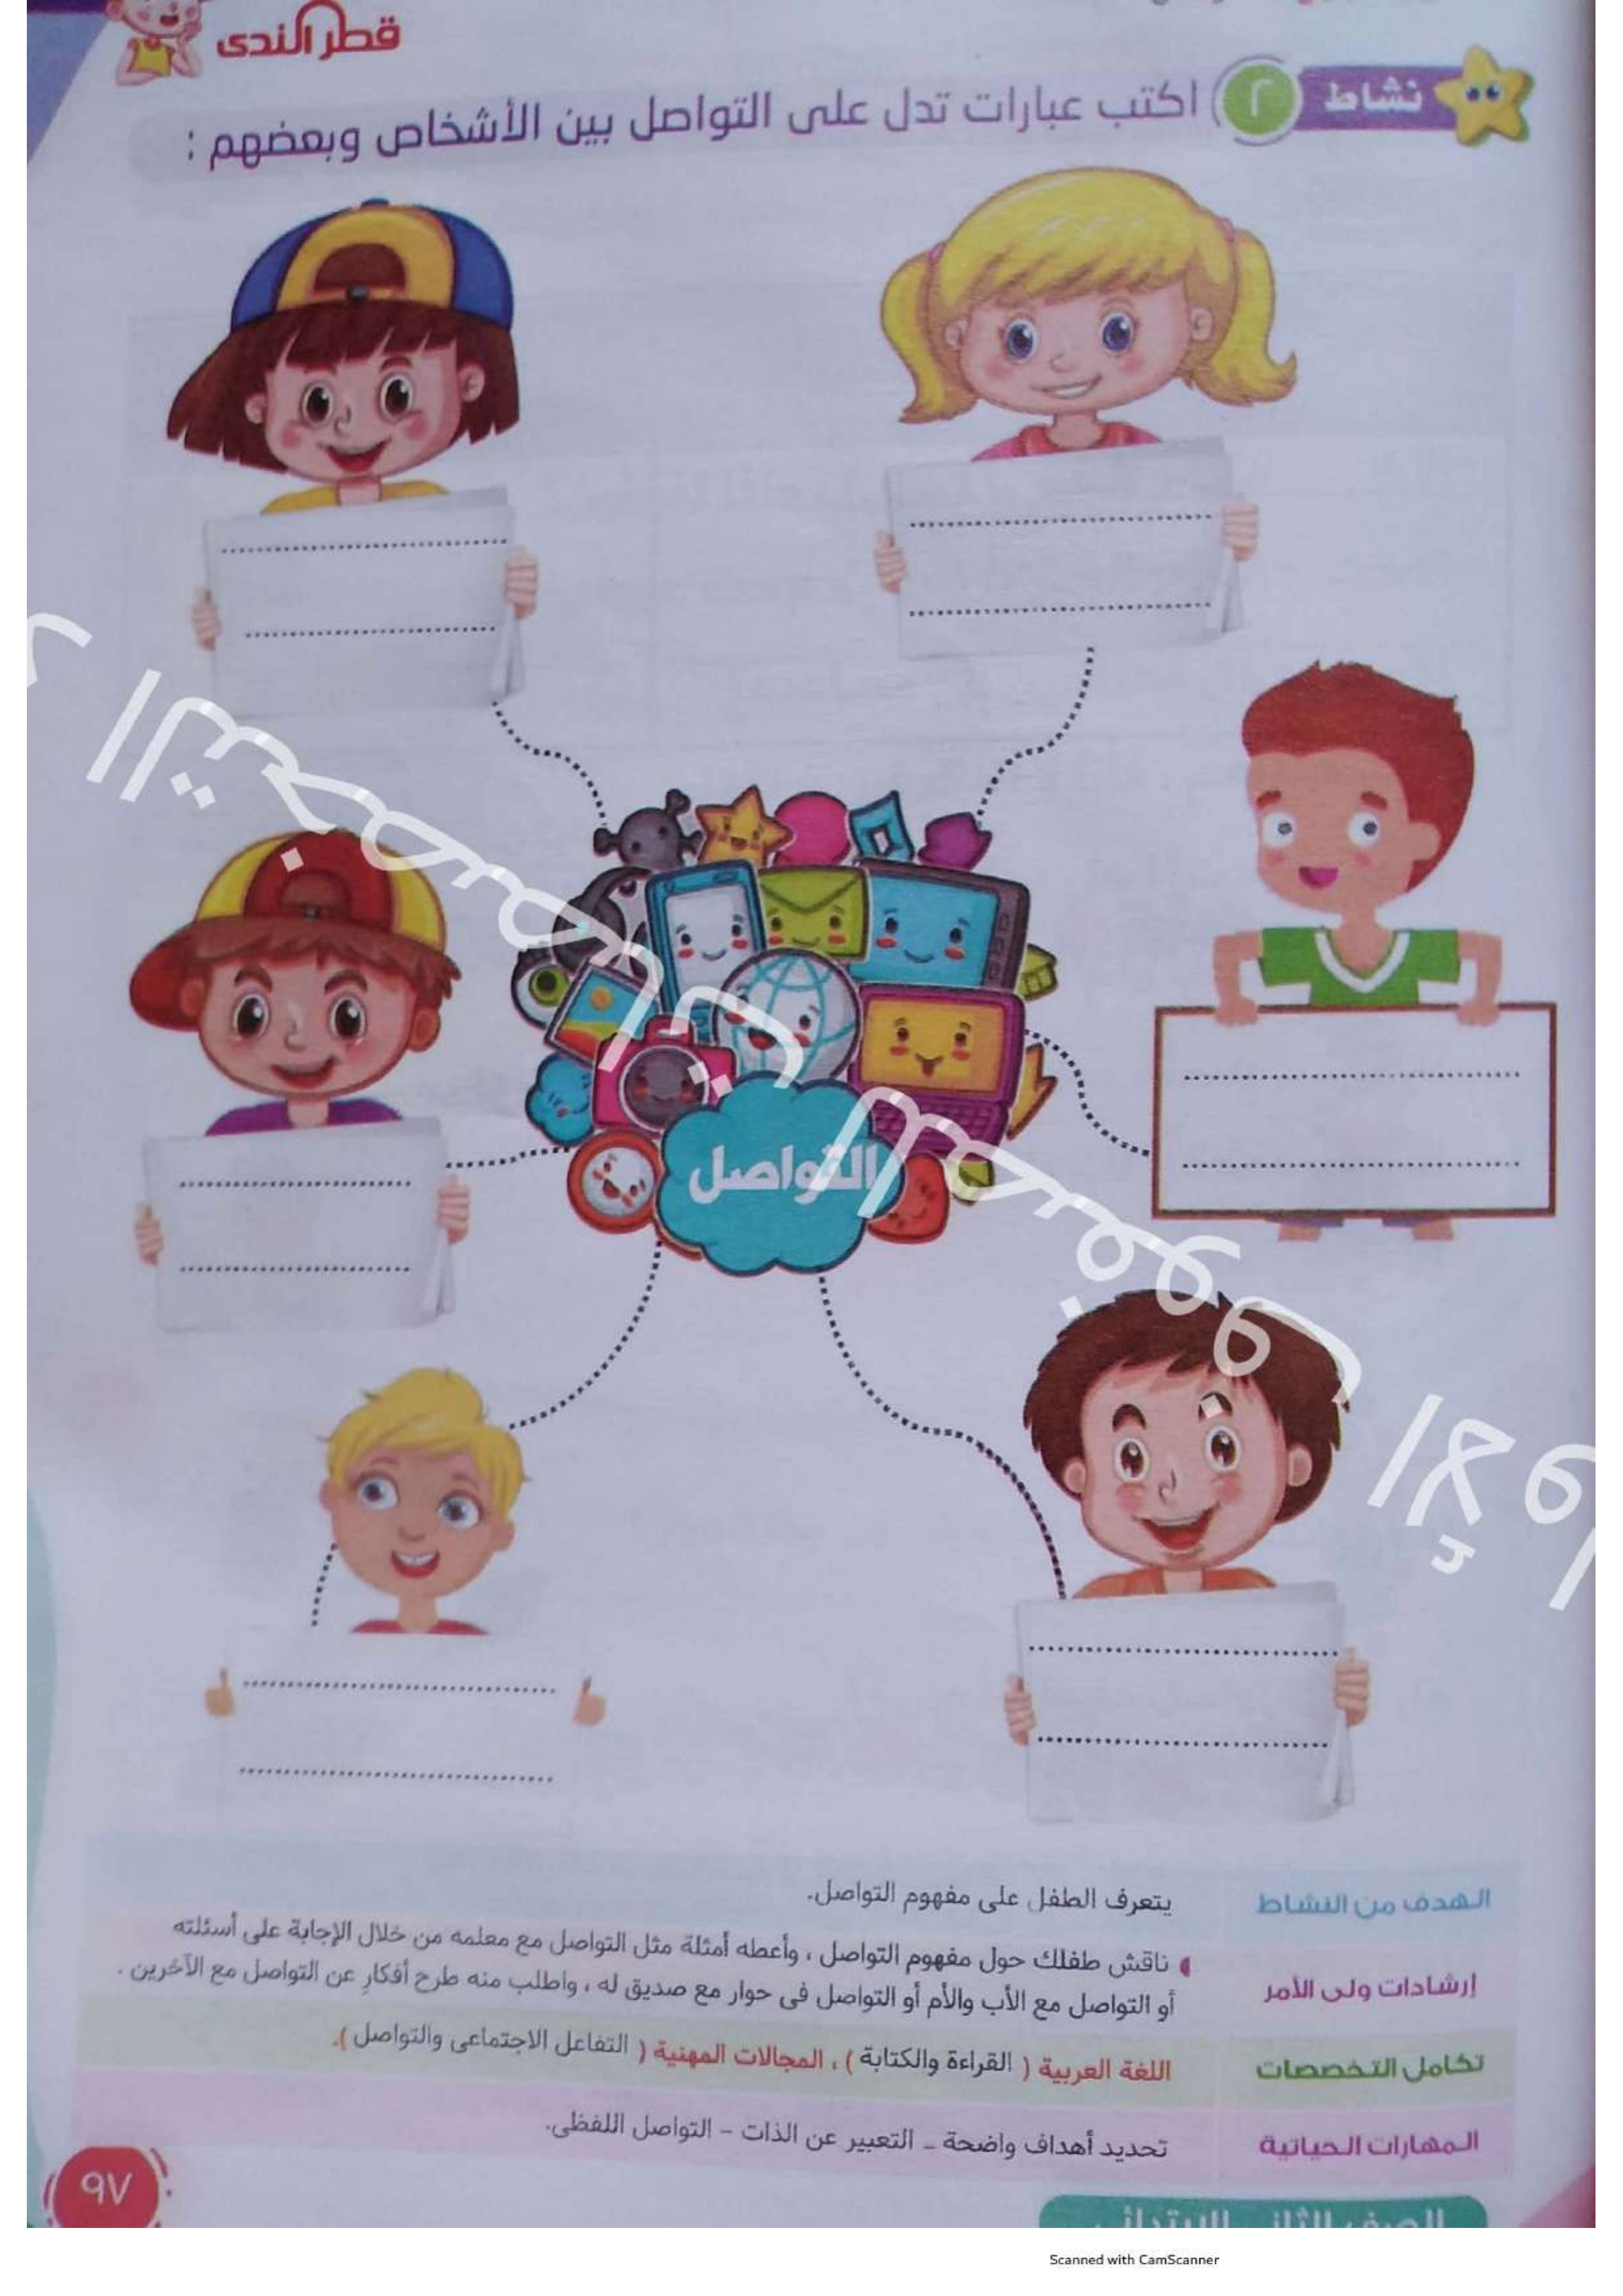 قطر الندى
نشاط ٢ اكتب عبارات تدل على التواصل بين الأشخاص وبعضهم :
التواصل
الهدف من النشاط
يتعرف الطفل على مفهوم التواصل.
إرشادات ولى الأمر
ناقش طفلك حول مفهوم التواصل ، وأعطه أمثلة مثل التواصل مع معلمه من خلال الإجابة على أسئلته
أو التواصل مع الأب والأم أو التواصل فى حوار مع صديق له ، واطلب منه طرح أفكارٍ عن التواصل مع الآخرين .
تكامل التخصصات
اللغة العربية ( القراءة والكتابة ) ، المجالات المهنية ( التفاعل الاجتماعى والتواصل ).
المهارات الحياتية
تحديد أهداف واضحة - التعبير عن الذات - التواصل اللفظى.
٩٧
الصف الثانى الابتدائى
Scanned with CamScanner